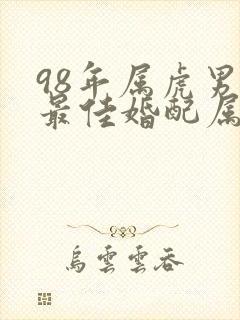 98年属虎男
最佳婚配属
乌云云吞